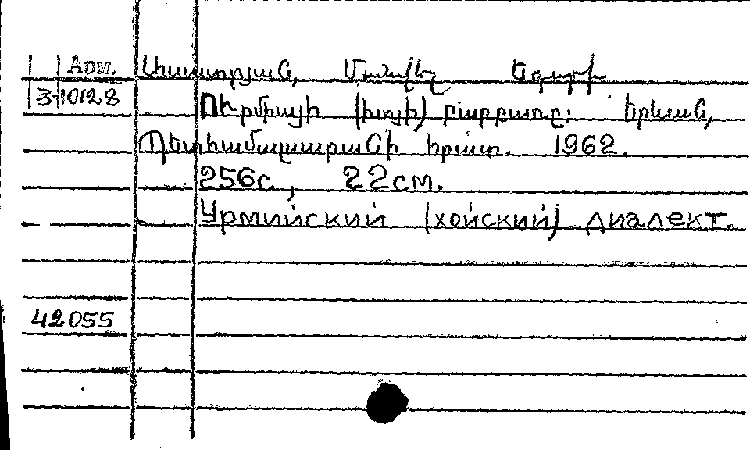 Арм. Ասատրյան, Մանվել Եգորի
3-10128 Ուրմիայի (խոյի) բարբառը: Երևան,
Պետհամալսարանի հրատ. 1962.
256с., 22см.
Урмийский (хойский) диалект.
42055